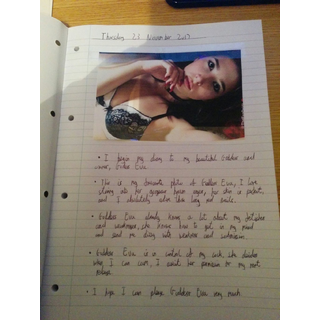 Thursday 21 November 2017
• I begin my diary to my beautiful Goddess and
owner, Goddess Eva.
• This is my favourite photo of Goddess Eva, I love
staring into her gorgeous brown eyes, her is perfect,
and I absolutely adore this long and smile.
• Goddess Eva already knows a lot about my fetishes
and weaknesses, she knows how to get in my mind
and send me dizzy with weakness and submission.
• Goddess Eva is in control of my cock, she decides
when I can cum, I await her permission for my next
release.
• I hope I can please Goddess Eva very much.